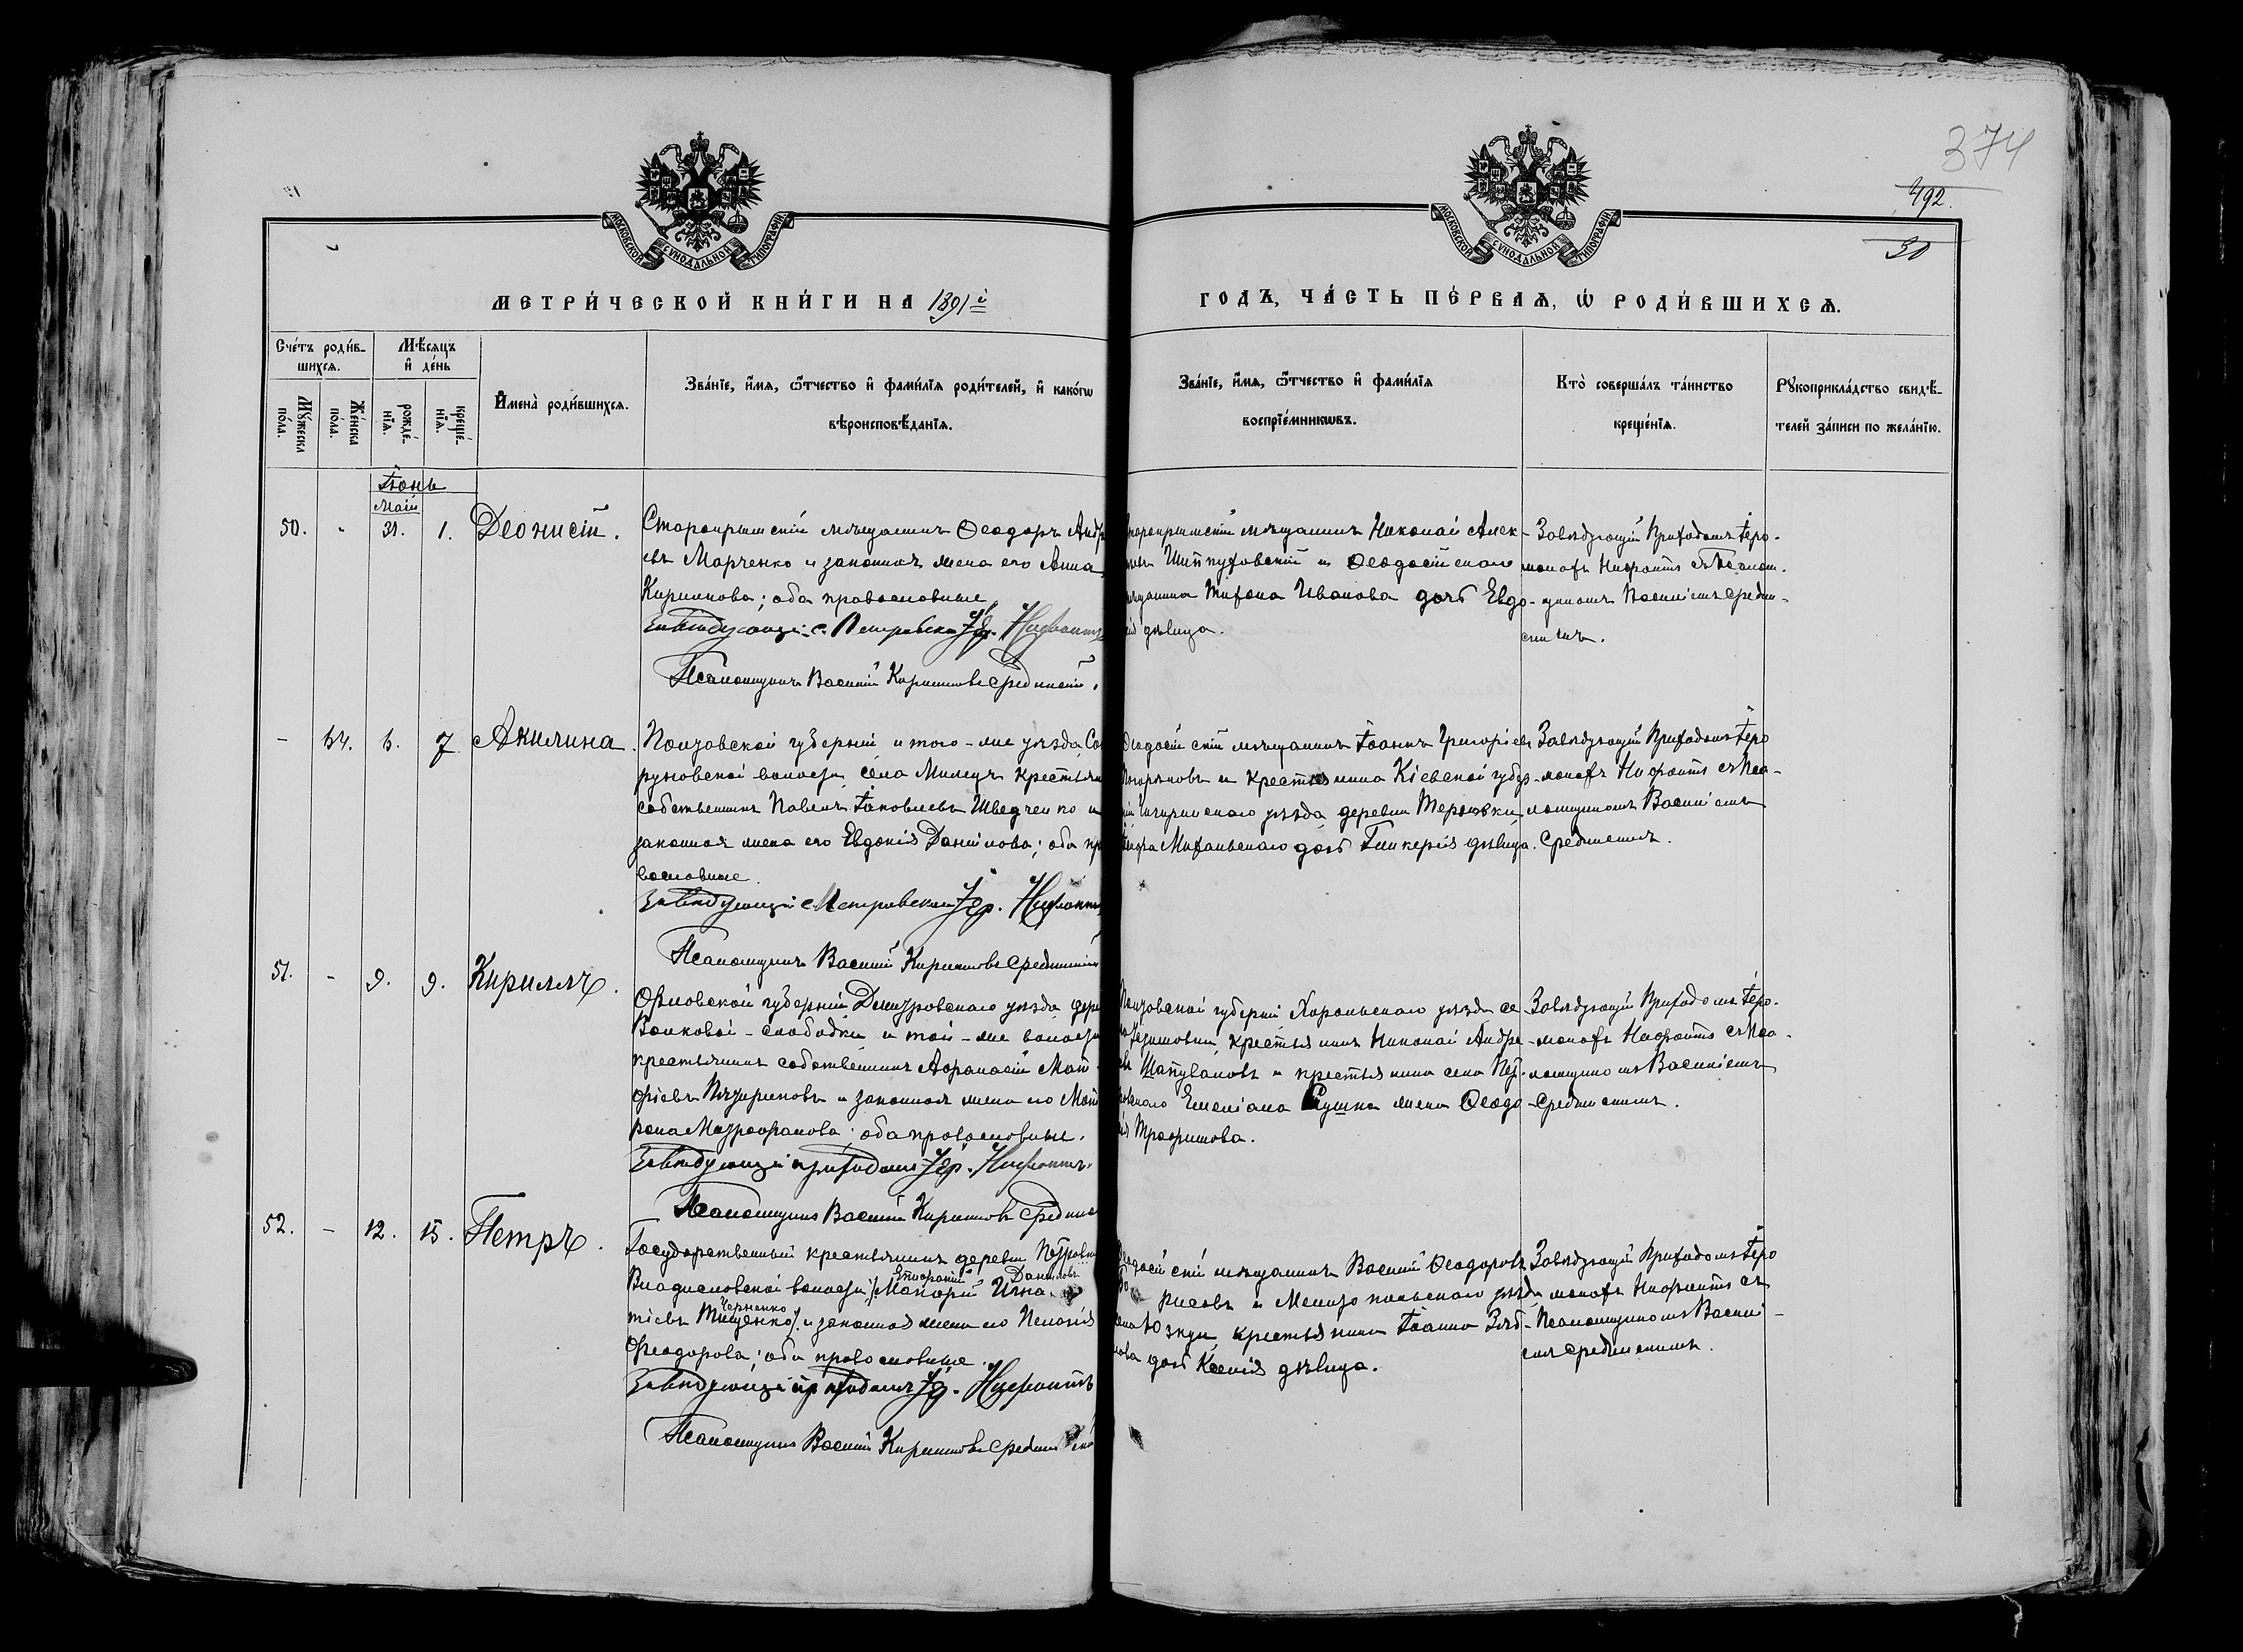 374
492.
30
МОСКОВСКОЙ СѴНОДАЛЬНОЙ ТИПОГРАФІИ
МОСКОВСКОЙ СѴНОДАЛЬНОЙ ТИПОГРАФІИ
МЕТРИ́ЧЕСКОЙ КНИ́ГИ НА 1891й
ГОДЪ, ЧА́СТЬ ПЕ́РВАЯ, Ѡ РОДИ́ВШИХСЯ.
Сче́тъ роди́в-
шихся.
Мѣсяцъ
и де́нь
Мꙋ́жеска
по́ла.
Же́нска
по́ла.
рожде́-
нїя.
креще́-
нїя.
Имена̀ роди́вшихся.
Зва́нїе, и́мя, ѻ́тчество и фами́лїя роди́телей, и како́гѡ
вѣроисповѣ́данїя.
Зва́нїе, и́мя, ѻ́тчество и фами́лїя
воспрїе́мникѡвъ.
Кто̀ соверша́лъ та́инство
креще́нїя.
Рꙋкоприкла́дство свидѣ́-
телей за́писи по жела́нїю.
Іюнь
Маій
50. - 31. 1. Деонисій.
Старокрымскій мѣщанинъ Ѳеодоръ Андр
евъ Марченко и законная жена его Анна
Кирилнова; оба православные
Завѣдующій с. Петровскъ Іер. Нифонтъ
Псаломщикъ Василій Кирилловъ Срединскій.
тарокрымскій мѣщанинъ Николай Алек-
Шиппуховскій и Ѳеодосійскаго
мѣщанина Тихона Иванова дочь Евдо-
кія дѣвица.
Завѣдующій Приходомъ Іеро-
монахъ Нифонтъ съ Псалом-
щикомъ Василіемъ Средин-
скимъ.
- 54. 6. 7. Акилина.
Полтавской губерніи и того-же уѣзда Со
руновской волости, села Милецъ крестьян
собственникъ Павелъ Іаковлевъ Шведченко и
законная жена его Евдокія Даніилова; оба пр
вославные.
Завѣдующій с Петровскъ Іер. Нифонтъ
Псаломщикъ Василій Кирилловъ Срединскій
Ѳеодосійскій мѣщанинъ Іоаннъ Григоріевъ
и крестьянина Кіевской губер-
ніи Чигиринскаго уѣзда, деревни Терновки,
Михальскаго дочь Гликерія дѣвица.
Завѣдующій Приходомъ Іеро
монахъ Нифонтъ съ Пса-
ломщикомъ Василіемъ
Срединскимъ.
51. - 9. 9. Кириллъ.
Орловской губерніи, Дмитровскаго уѣзда дер
Волковой-слободки и той-же волости
крестьянинъ собственникъ Аѳанасій Мат
ѳіевъ и законная жена его Мат
рона Митрофанова; оба православные.
Завѣдующій приходомъ Іер. Нифонтъ.
Псаломщикъ Василій Кирилловъ Средин
Полтавской губерніи Хорольскаго уѣзда се-
крестьянинъ Николай Андре
евъ Шапуваловъ и крестьянина села Пет-
ровскаго Емеліана жена Ѳеодо
Трофимова.
Завѣдующій Приходомъ Іеро-
монахъ Нифонтъ съ Пса-
ломщикомъ Василіемъ
Срединскимъ.
52. - 12. 15. Петръ.
Государственный крестьянинъ деревни Петровк
Владиславской волости Макарій Игна-
Даниловъ
Черненко
тіевъ Тищенко и законная жена его Пелагія
Ѳеодорова; оба православные.
Завѣдующій приходомъ Іер. Нифонтъ
Псаломщикъ Василій Кирилловъ Срединскій
Ѳеодосійскій мѣщанинъ Василій Ѳеодоровъ
и Мелитопольскаго уѣзда
крестьянина Іоанна
дочь Ксенія дѣвица.
Завѣдующій Приходомъ Іеро
монахъ Нифонтъ съ
Псаломщикомъ Василі-
емъ Срединскимъ.